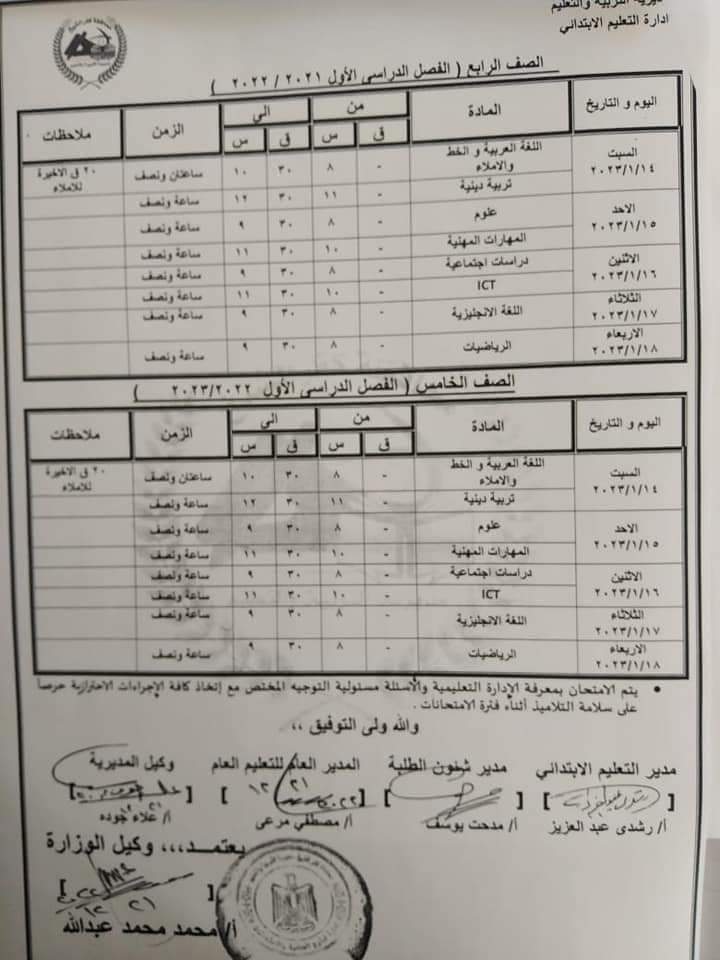 مديرية التربية والتعليم
ادارة التعليم الابتدائي
الصف الرابع ( الفصل الدراسى الأول ٢٠٢١ / ٢٠٢٢ )
اليوم و التاريخ المادة من الي الزمن ملاحظات
ق س ق س
السبت ٢٠٢٣/١/١٤ اللغة العربية و الخط والاملاء - ٨ ٣٠ ١٠ ساعتان ونصف ٢٠ ق الاخيرة للاملاء
تربية دينية - ١١ ٣٠ ١٢ ساعة ونصف
الاحد ٢٠٢٣/١/١٥ علوم - ٨ ٣٠ ٩ ساعة ونصف
المهارات المهنية - ١٠ ٣٠ ١١ ساعة ونصف
الاثنين ٢٠٢٣/١/١٦ دراسات اجتماعية - ٨ ٣٠ ٩ ساعة ونصف
ICT - ١٠ ٣٠ ١١ ساعة ونصف
الثلاثاء ٢٠٢٣/١/١٧ اللغة الانجليزية - ٨ ٣٠ ٩ ساعة ونصف
الاربعاء ٢٠٢٣/١/١٨ الرياضيات - ٨ ٣٠ ٩ ساعة ونصف
الصف الخامس ( الفصل الدراسى الأول ٢٠٢٣/٢٠٢٢ )
اليوم و التاريخ المادة من الى الزمن ملاحظات
ق س ق س
السبت ٢٠٢٣/١/١٤ اللغة العربية و الخط والاملاء - ٨ ٣٠ ١٠ ساعتان ونصف ٢٠ ق الاخيرة للاملاء
تربية دينية - ١١ ٣٠ ١٢ ساعة ونصف
الاحد ٢٠٢٣/١/١٥ علوم - ٨ ٣٠ ٩ ساعة ونصف
المهارات المهنية - ١٠ ٣٠ ١١ ساعة ونصف
الاثنين ٢٠٢٣/١/١٦ دراسات اجتماعية - ٨ ٣٠ ٩ ساعة ونصف
ICT - ١٠ ٣٠ ١١ ساعة ونصف
الثلاثاء ٢٠٢٣/١/١٧ اللغة الانجليزية - ٨ ٣٠ ٩ ساعة ونصف
الاربعاء ٢٠٢٣/١/١٨ الرياضيات - ٨ ٣٠ ٩ ساعة ونصف
• يتم الامتحان بمعرفة الإدارة التعليمية والأسئلة مسئولية التوجيه المختص مع إتخاذ كافة الإجراءات الاحترازية حرصاً
على سلامة التلاميذ أثناء فترة الامتحانات .
والله ولى التوفيق ،،
مدير التعليم الابتدائي مدير شئون الطلبة المدير العام للتعليم العام وكيل المديرية
[ ] [ ] [ ٢٠٢٢ ١٢ ٢١ ] [ ]
أ/ رشدى عبد العزيز أ/ مدحت يوسف أ/ مصطفي مرعى أ/ علاء جوده
يعتمد،،، وكيل الوزارة
[ ١٢ ٢١ ]
أ/ محمد محمد عبدالله